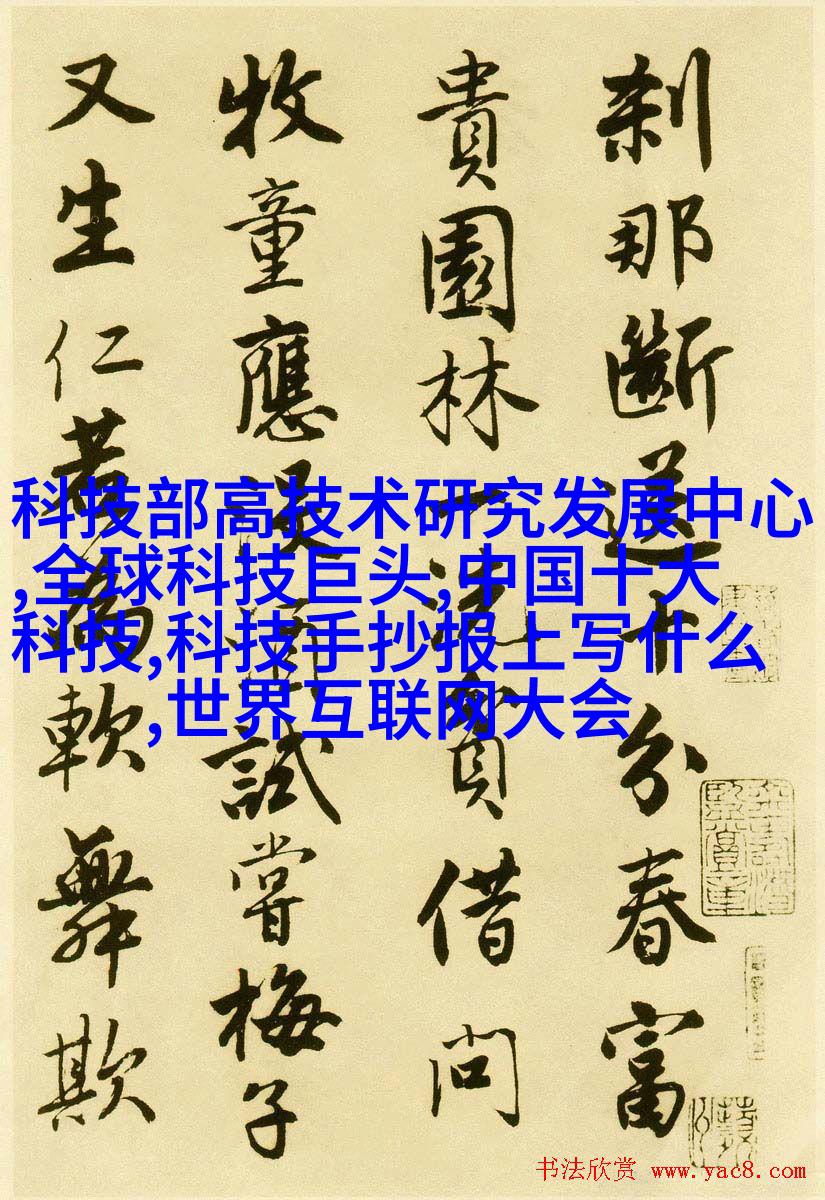 刹那斷送十分春富
貴園林一洗貧借問
牧童應沒酒試嘗梅子
又生仁若為軟舞欺
科技部高技术研究发展中心
,全球科技巨头,中国十大
科技,科技手抄报上写什么
,世界互联网大会
书法欣赏 www.yac8.com